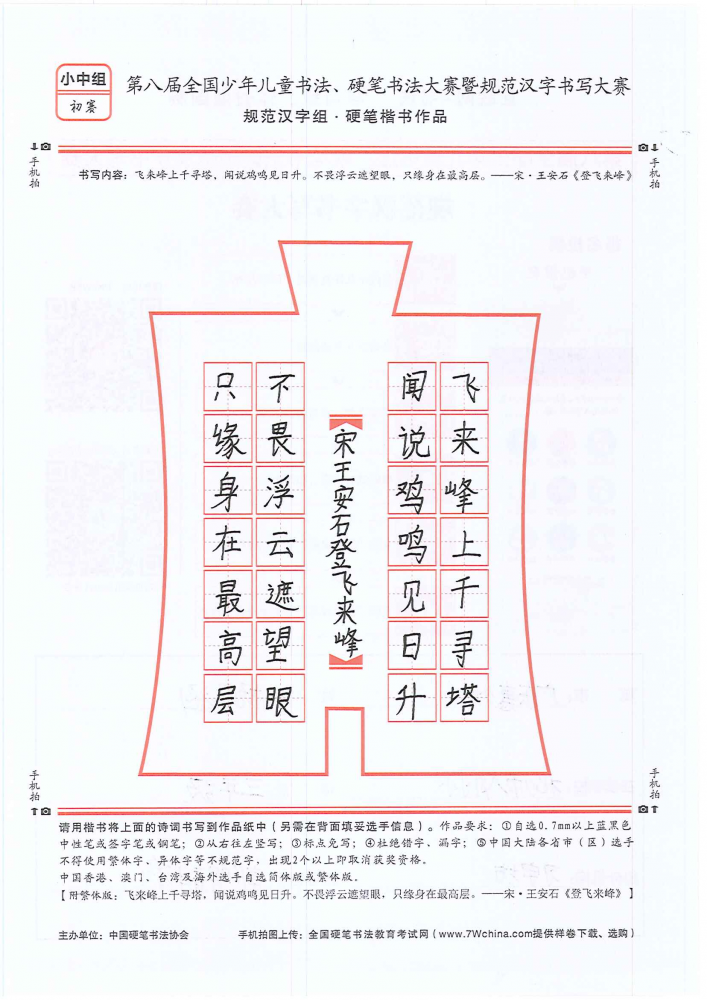 小中组
初赛
第八届全国少年儿童书法、硬笔书法大赛暨规范汉字书写大赛
规范汉字组·硬笔楷书作品
手机拍
手机拍
书写内容：飞来峰上千寻塔，闻说鸡鸣见日升。不畏浮云遮望眼，只缘身在最高层。——宋·王安石《登飞来峰》
飞来峰上千寻塔
闻说鸡鸣见日升
宋王安石登飞来峰
不畏浮云遮望眼
只缘身在最高层
手机拍
手机拍
请用楷书将上面的诗词书写到作品纸中（另需在背面填妥选手信息）。作品要求：①自选0.7mm以上蓝黑色
中性笔或签字笔或钢笔；②从右往左竖写；③标点免写；④杜绝错字、漏字；⑤中国大陆各省市（区）选手
不得使用繁体字、异体字等不规范字，出现2个以上即取消获奖资格。
中国香港、澳门、台湾及海外选手自选简体版或繁体版。
【附繁体版：飞來峰上千尋塔，聞說鷄鳴見日升。不畏浮雲遮望眼，只緣身在最高層。——宋·王安石《登飛來峰》】
主办单位：中国硬笔书法协会
手机拍图上传：全国硬笔书法教育考试网（www.7Wchina.com提供样卷下载、选购）